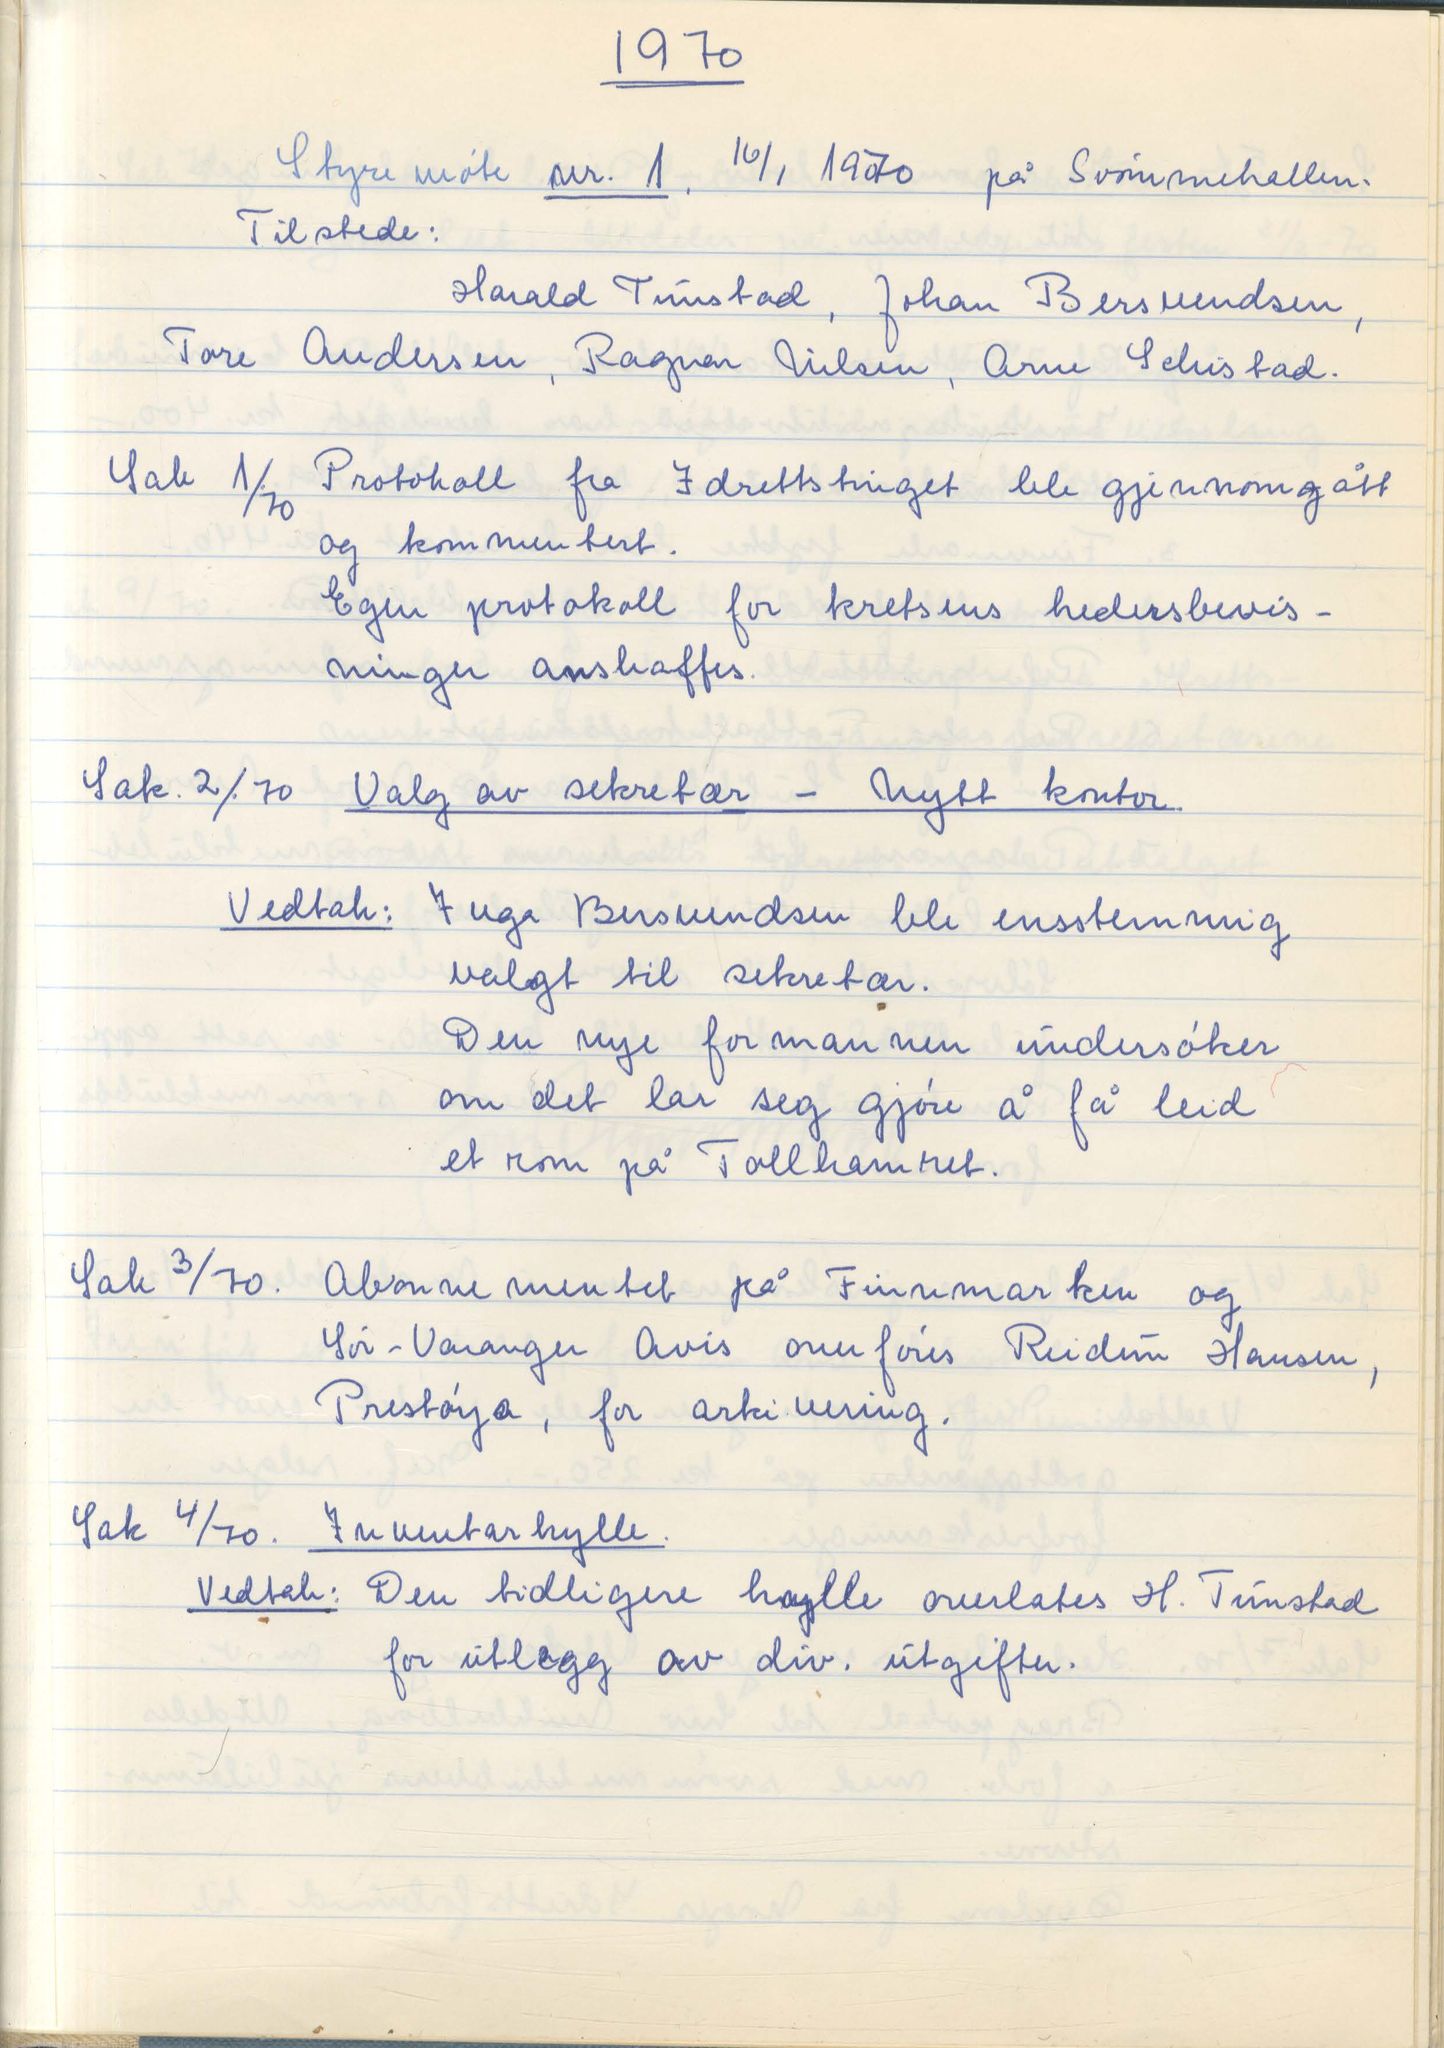 1970
Styremöte nr. 1. 16/1 1970 på Svömmehallen.
Tilstede:
Harald Tunstad, Johan Bersvendsen,
Tore Andersen, Ragnar Nilsen, Arne Schistad.
Sak 1/70 Protokoll fra Idrettstinget ble gjennomgått
og kommentert.
Egen protokoll for kretsens hedersbevis-
ninger anskaffes.
Sak. 2/70 Valg av sekretær - Nytt kontor.
Vedtak: Inga Bersvendsen ble ensstemmig
valgt til sekretær.
Den nye formannen undersöker
om det lar seg gjöre å få leid
et rom på Tollkamret.
Sak 3/70. Abonnementet på Finnmarken og
Sör-Varanger Avis overföres Reidun Hansen,
Prestöya, for arkivering.
Sak 4/70. Inventarhylle.
Vedtak: Den tidligere hylle overlates H. Tunstad
for utlegg av div. utgifter.